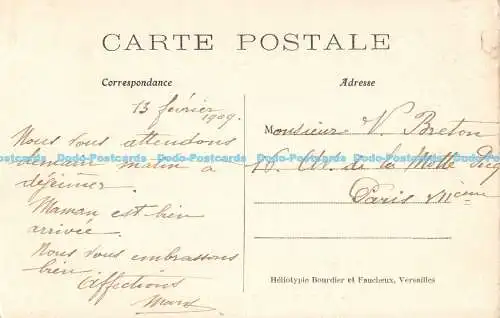 CARTE POSTALE
Correspondance
Adresse
13 février
1909.
Nous vous attendons
demain matin à
déjeuner.
Maman est bien
arrivée.
Nous vous embrassons
bien
Affections
Monsieur V. Breton
Av. de la Motte Picq
Paris VIIème
Dodo-Postcards Dodo-Postcards Dodo-Postcards Dodo-Postcards Dodo-Postcards Dodo-Postcards
Héliotypie Bourdier et Faucheux, Versailles